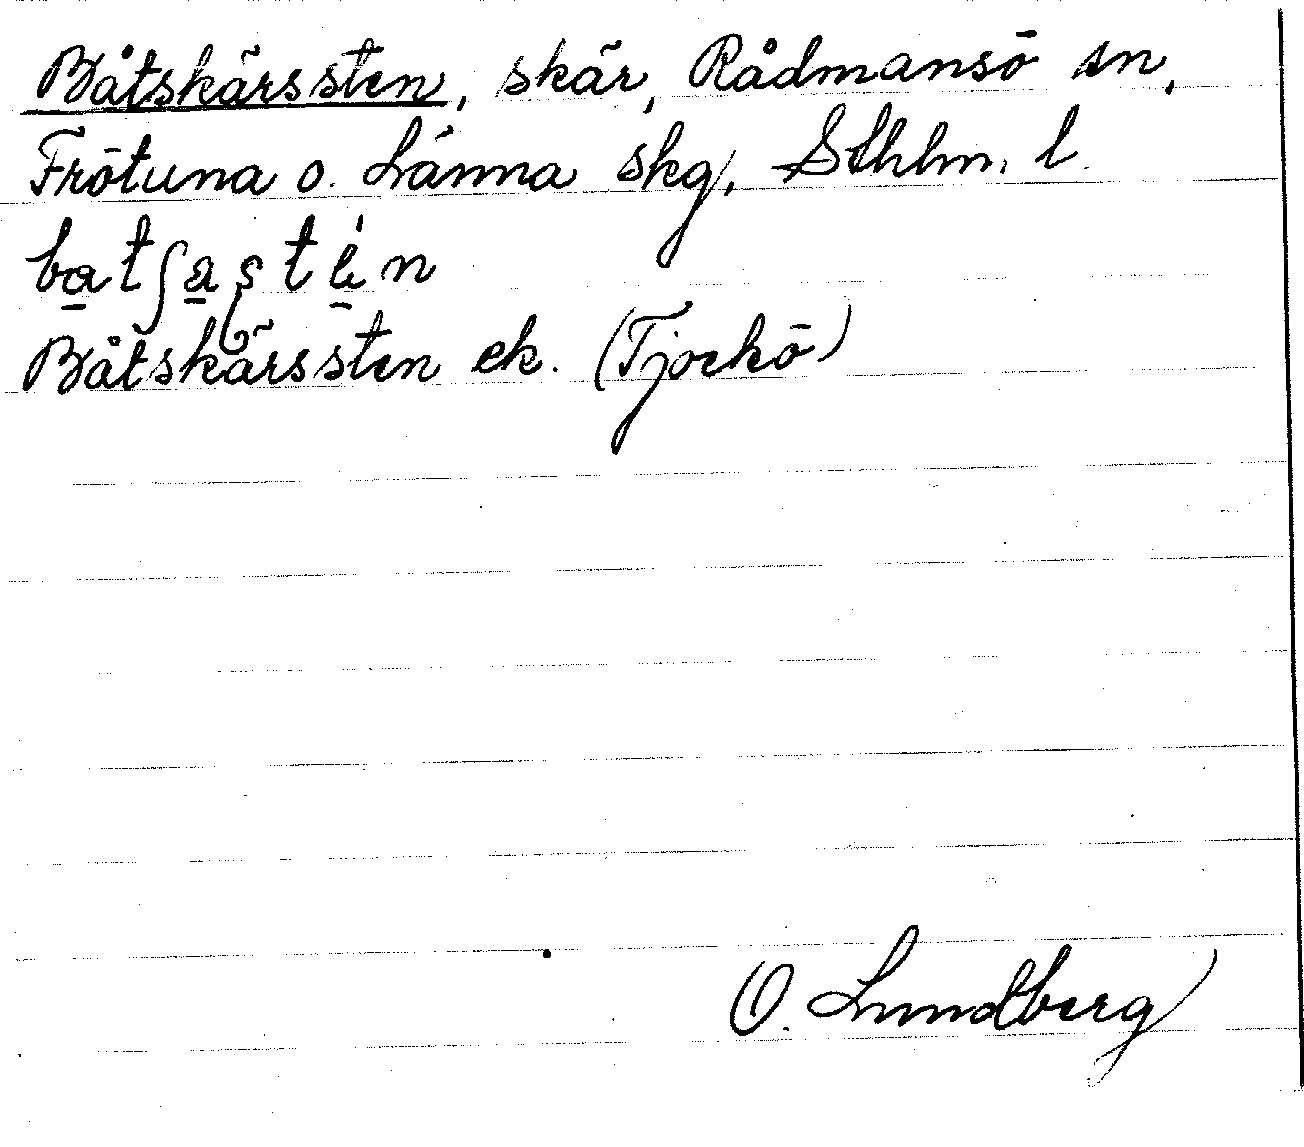 Båtskärssten, skär, Rådmansö sn,
Frötuna o. Länna skg, Sthlm. l.
Båtskärssten ek. (Tjockö)
O. Lundberg